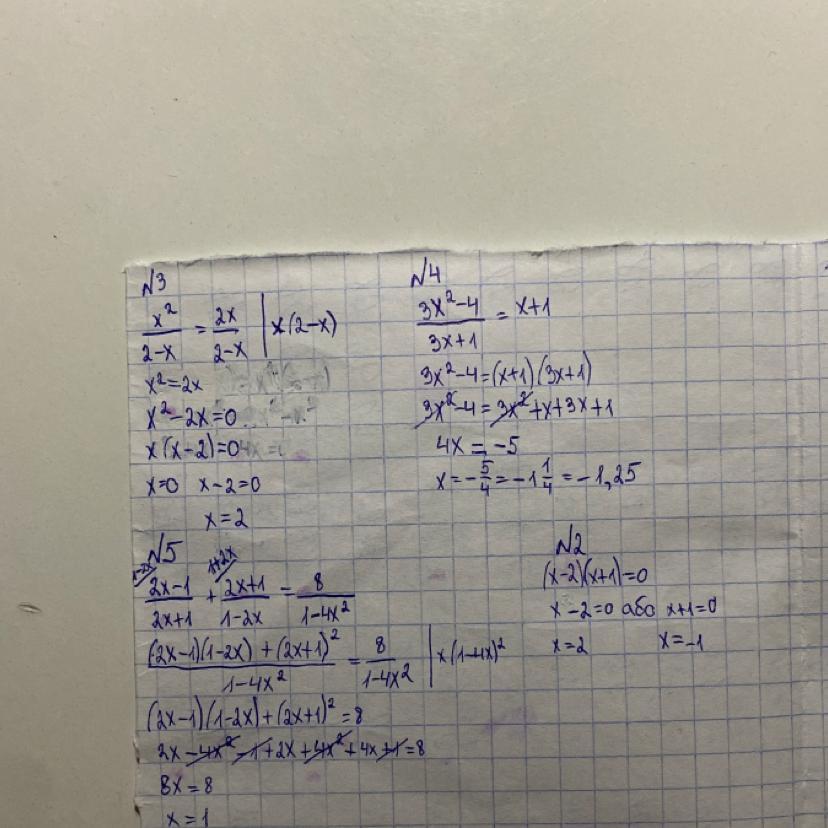 №3
x²/(2-x) = 2x/(2-x) | x(2-x)
x²=2x
x²-2x=0
x(x-2)=0
x=0 x-2=0
x=2
№4
(3x²-4)/(3x+1) = x+1
3x²-4=(x+1)(3x+1)
3x²-4=3x²+x+3x+1
4x=-5
x=-5/4=-1 1/4=-1,25
№5
1-2x/ 1+2x/
(2x-1)/(2x+1) + (2x+1)/(1-2x) = 8/(1-4x²)
((2x-1)(1-2x)+(2x+1)²)/(1-4x²) = 8/(1-4x²) | x(1-4x)²
(2x-1)(1-2x)+(2x+1)²=8
2x-4x²-1+2x+4x²+4x+1=8
8x=8
x=1
№2
(x-2)(x+1)=0
x-2=0 або x+1=0
x=2 x=-1